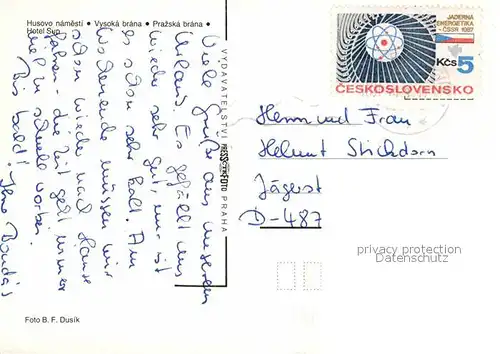 Husovo náměstí • Vysoká brána • Pražská brána •
Hotel Sup
Viele Grüße aus unserem
Urlaub. Es gefällt uns
wieder sehr gut, nur ist
es schon sehr kalt. Am
Wochenende müssen wir
schon wieder nach Hause
fahren - die Zeit geht immer
viel zu schnell vorbei.
Bis bald!
VYDAVATELSTVÍ PRESSFOTO PRAHA
JADERNÁ
ENERGETIKA
ČSSR 1987
Kčs 5
ČESKOSLOVENSKO
Herrn und Frau
Helmut Stichdorn
Jägerst
D-487
privacy protection
Datenschutz
Foto B. F. Dusík